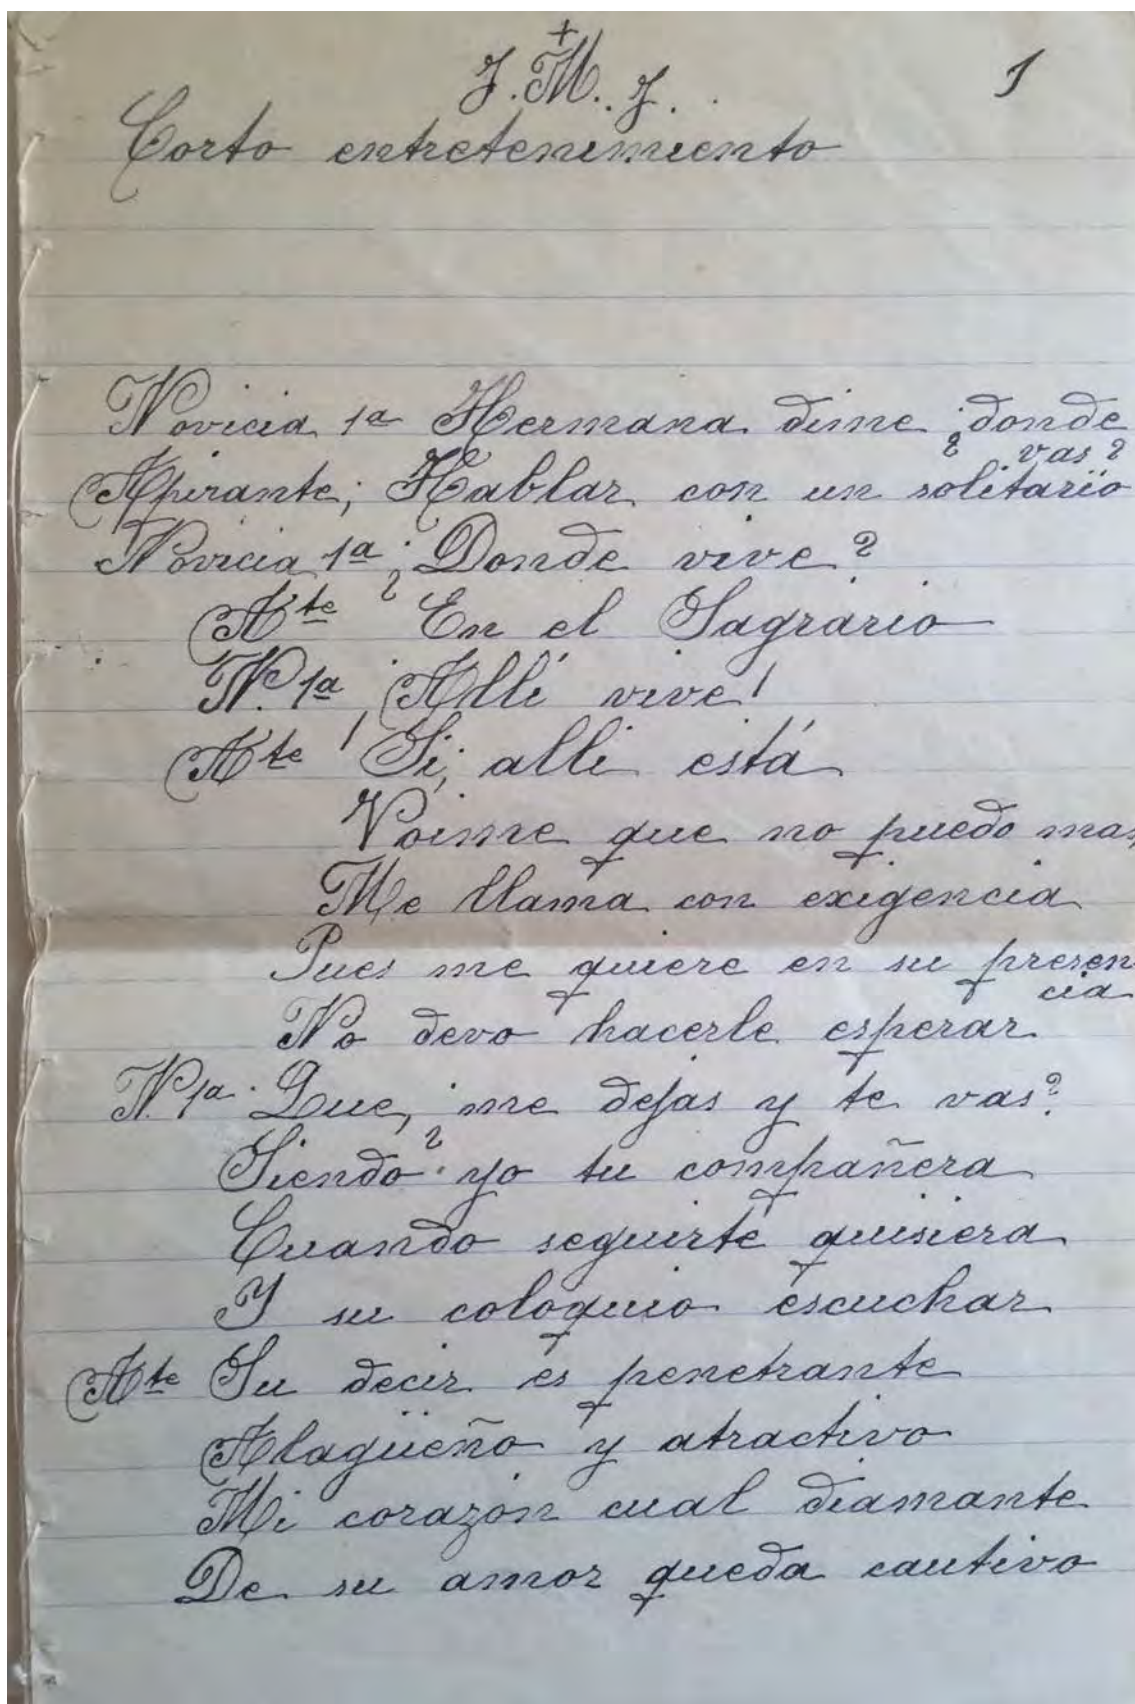 +
J. M. J.
1
Corto entretenimiento
Novicia 1ª Hermana dime ¿donde
vas?
Apirante; Hablar con un solitario
Novicia 1ª ¿Donde vive?
Ate En el Sagrario
N. 1ª ¡Allí vive!
Ate Si, alli está
Voime que no puedo mas,
Me llama con exigencia
Pues me quiere en su presen
cia
No devo hacerle esperar
N. 1ª Que, ¿me dejas y te vas?
Siendo yo tu compañera
Cuando seguirte quisiera
Y su coloquio escuchar
Ate Su decir es penetrante
Alagüeño y atractivo
Mi corazón cual diamante
De su amor queda cautivo